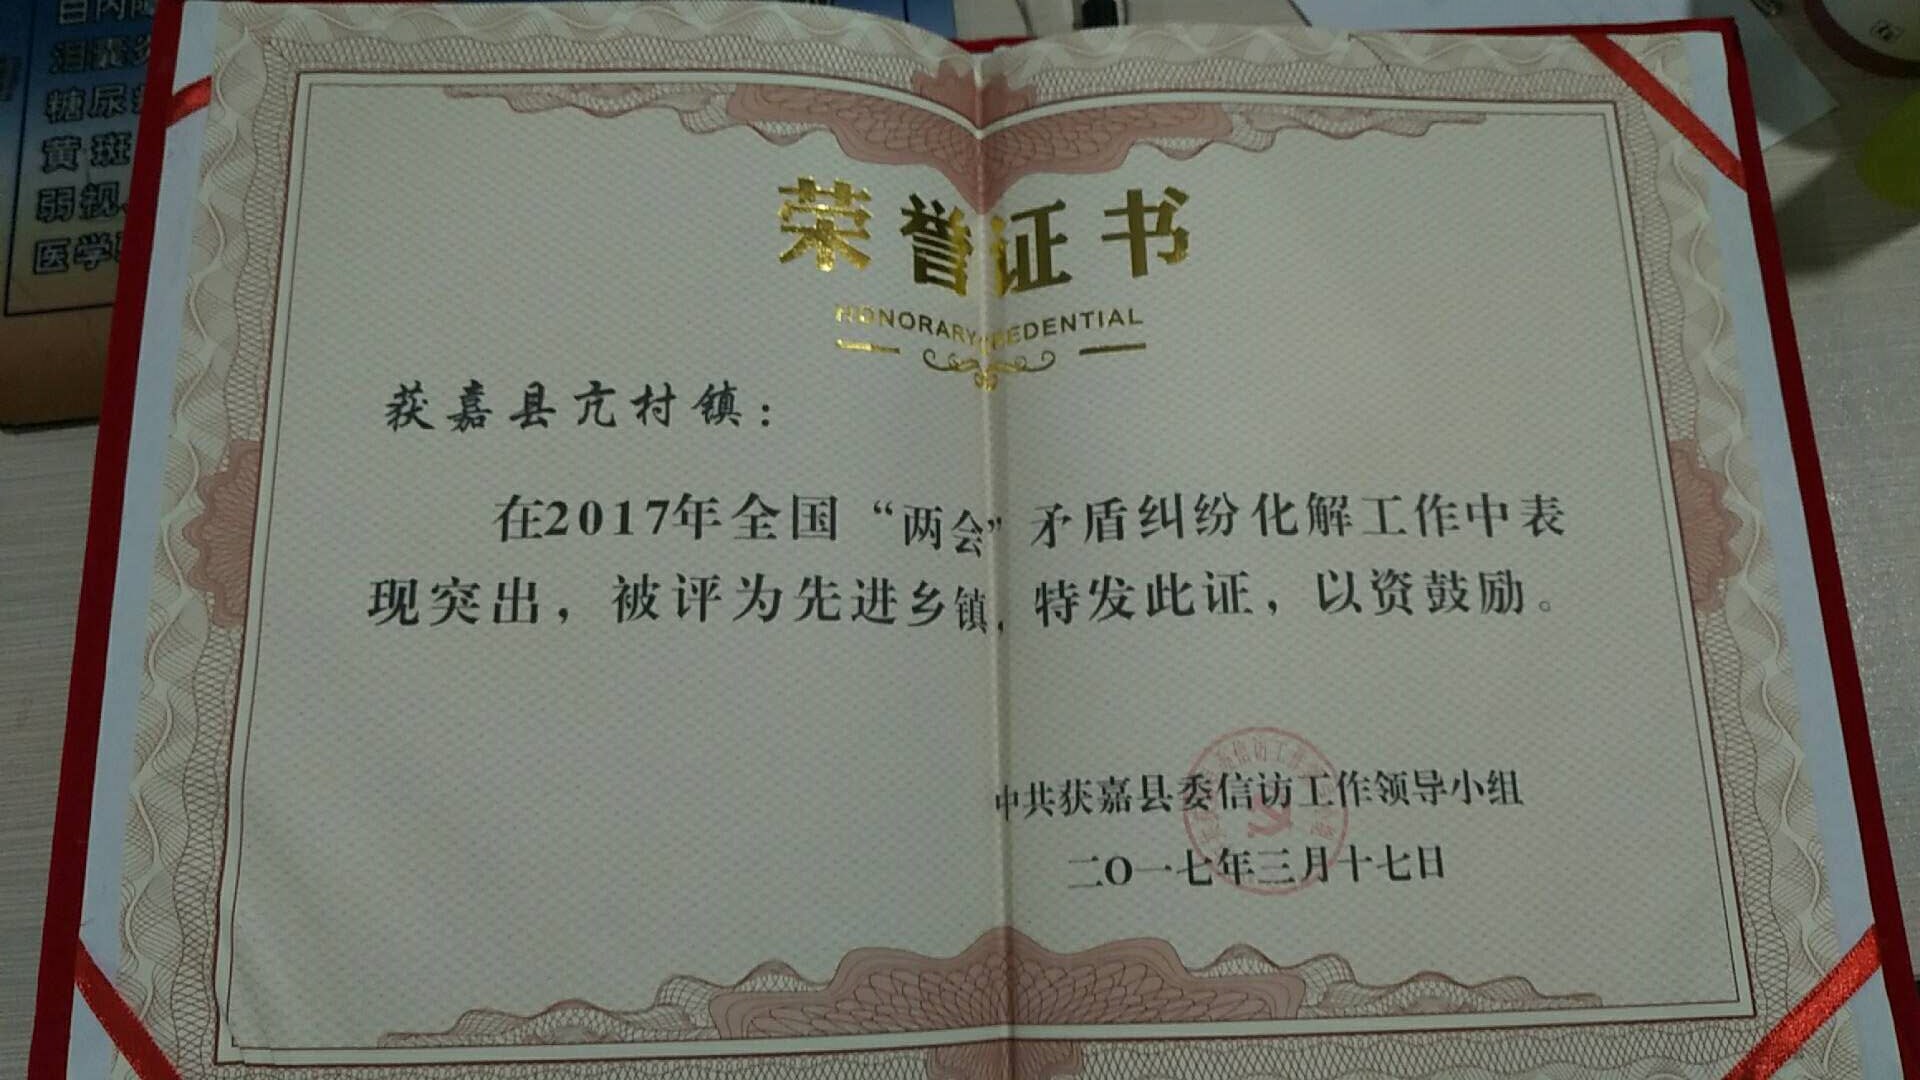 糖尿
黄斑
弱视
医学
荣誉证书
HONORARY CREDENTIAL
获嘉县亢村镇：
在2017年全国“两会”矛盾纠纷化解工作中表
现突出，被评为先进乡镇，特发此证，以资鼓励。
中共获嘉县委信访工作领导小组
二〇一七年三月十七日